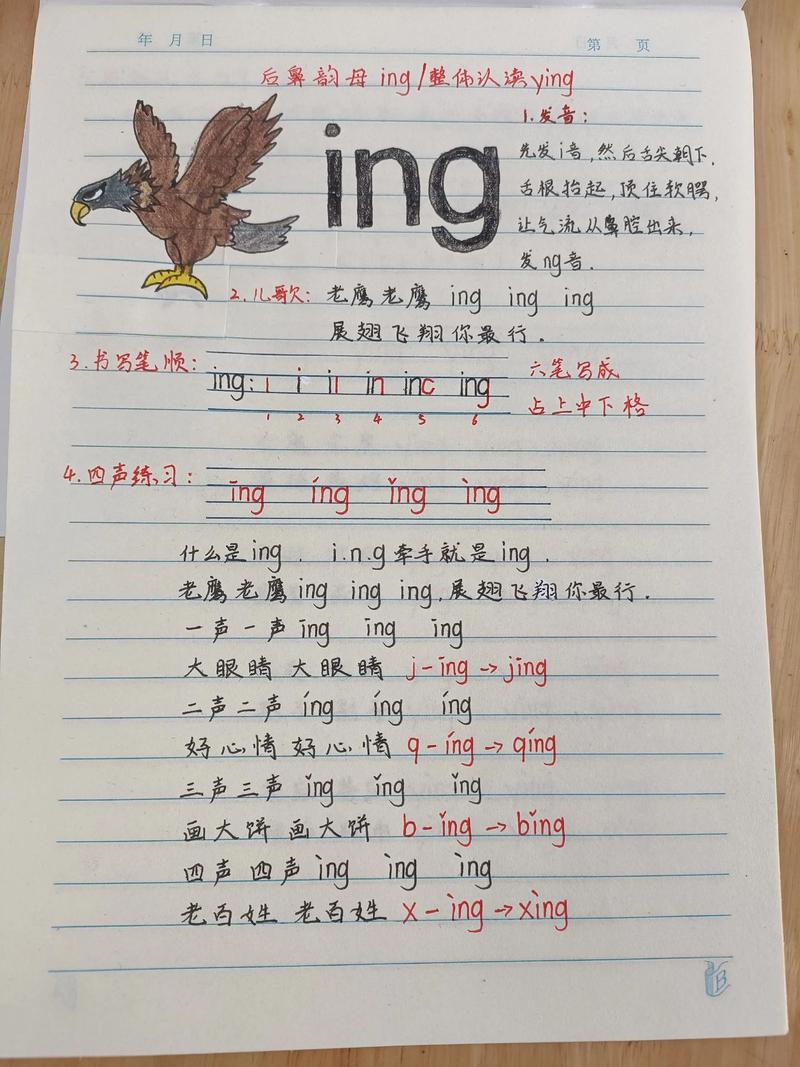 年 月 日
第 页
后鼻韵母 ing/整体认读ying
ing
1.发音：
先发i音，然后舌尖朝下，
舌根抬起，顶住软腭，
让气流从鼻腔出来，
发ng音．
2.儿歌：老鹰老鹰 ing ing ing
展翅飞翔你最行．
3.书写笔顺：
ing: ı i iı in inc ing
1 2 3 4 5 6
六笔写成
占上中下格
4.四声练习：
īng íng ǐng ìng
什么是ing． i.n.g牵手就是ing．
老鹰老鹰ing ing ing，展翅飞翔你最行．
一声一声 īng īng īng
大眼睛 大眼睛 j-īng→jīng
二声二声 íng íng íng
好心情 好心情 q-íng→qíng
三声三声 ǐng ǐng ǐng
画大饼 画大饼 b-ǐng→bǐng
四声四声 ìng ìng ìng
老百姓 老百姓 x-ìng→xìng
B